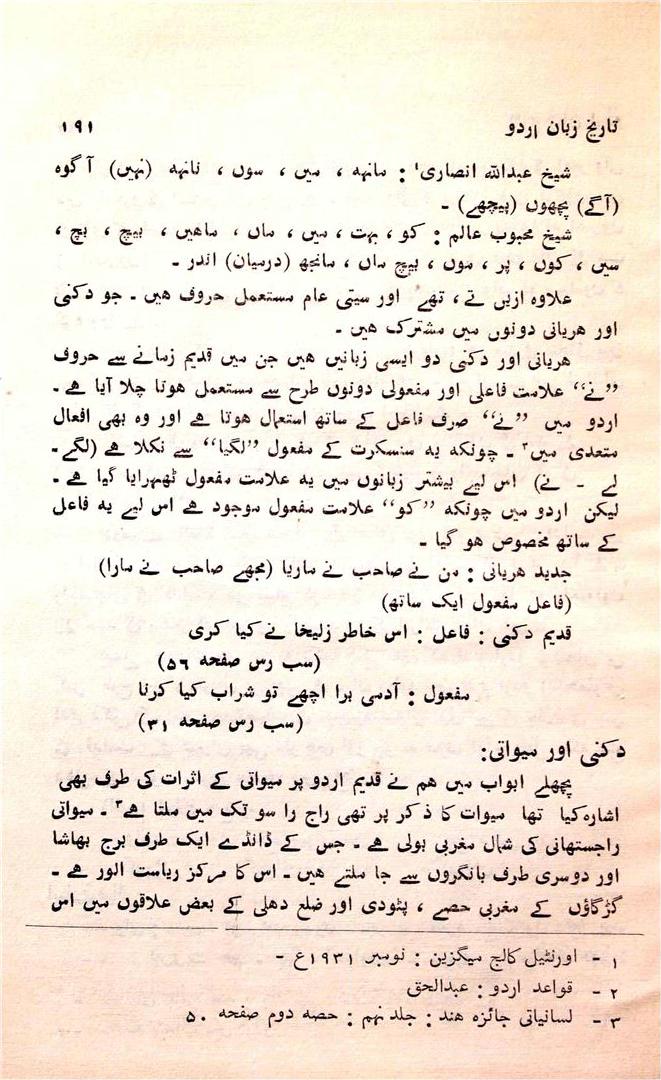 تاریخ زبان اردو ۱۹۱
شیخ عبداللہ انصاری۱ : مانہہ ، میں ، سوں ، نانہہ (نہیں) آگوہ
(آگے) پچھوں (پیچھے) ۔
شیخ محبوب عالم : کو ، بہت ، میں ، ماں ، ماهیں ، بیچ ، بچ ،
سیں ، کوں ، پر ، موں ، بیچ ماں ، مانجھ (درمیان) اندر ۔
علاوہ ازیں تے ، تھے اور سیتی عام مستعمل حروف هیں ۔ جو دکنی
اور هریانی دونوں میں مشترک هیں ۔
هریانی اور دکنی دو ایسی زبانیں هیں جن میں قدیم زمانے سے حروف
”نے“ علامت فاعلی اور مفعولی دونوں طرح سے مستعمل هوتا چلا آیا ہے ۔
اردو میں ”نے“ صرف فاعل کے ساتھ استعمال هوتا ہے اور وہ بھی افعال
متعدی میں۲ ۔ چونکہ یہ سنسکرت کے مفعول ”لگیا“ سے نکلا ہے (لگے ۔
لے ۔ نے) اس لیے بیشتر زبانوں میں یہ علامت مفعول ٹھہرایا گیا ہے ۔
لیکن اردو میں چونکہ ”کو“ علامت مفعول موجود ہے اس لیے یہ فاعل
کے ساتھ مخصوص هو گیا ۔
جدید هریانی : من نے صاحب نے ماریا (مجھے صاحب نے مارا)
(فاعل مفعول ایک ساتھ)
قدیم دکنی : فاعل : اس خاطر زلیخا نے کیا کری
(سب رس صفحہ ۵۶)
مفعول : آدمی برا اچھے تو شراب کیا کرنا
(سب رس صفحہ ۳۱)
دکنی اور میواتی:
پچھلے ابواب میں هم نے قدیم اردو پر میواتی کے اثرات کی طرف بھی
اشارہ کیا تھا میوات کا ذکر پر تھی راج را سو تک میں ملتا ہے۳ ۔ میواتی
راجستھانی کی شمال مغربی بولی ہے ۔ جس کے ڈانڈے ایک طرف برج بھاشا
اور دوسری طرف بانگروں سے جا ملتے هیں ۔ اس کا مرکز ریاست الور ہے ۔
گڑگاؤں کے مغربی حصے ، پٹودی اور ضلع دهلی کے بعض علاقوں میں اس
۱ ۔ اورنٹیل کالج میگزین : نومبر ۱۹۳۱ع ۔
۲ ۔ قواعد اردو : عبدالحق
۳ ۔ لسانیاتی جائزہ هند : جلد نہم : حصہ دوم صفحہ ۵۰